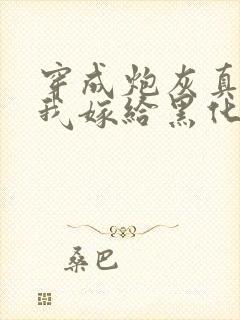 穿成炮灰真
我嫁给黑化
桑巴